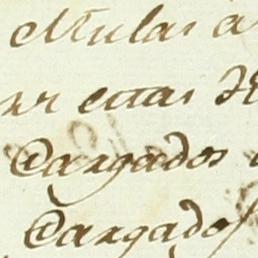 Mulas a
en estas de
Cargados
Cargados